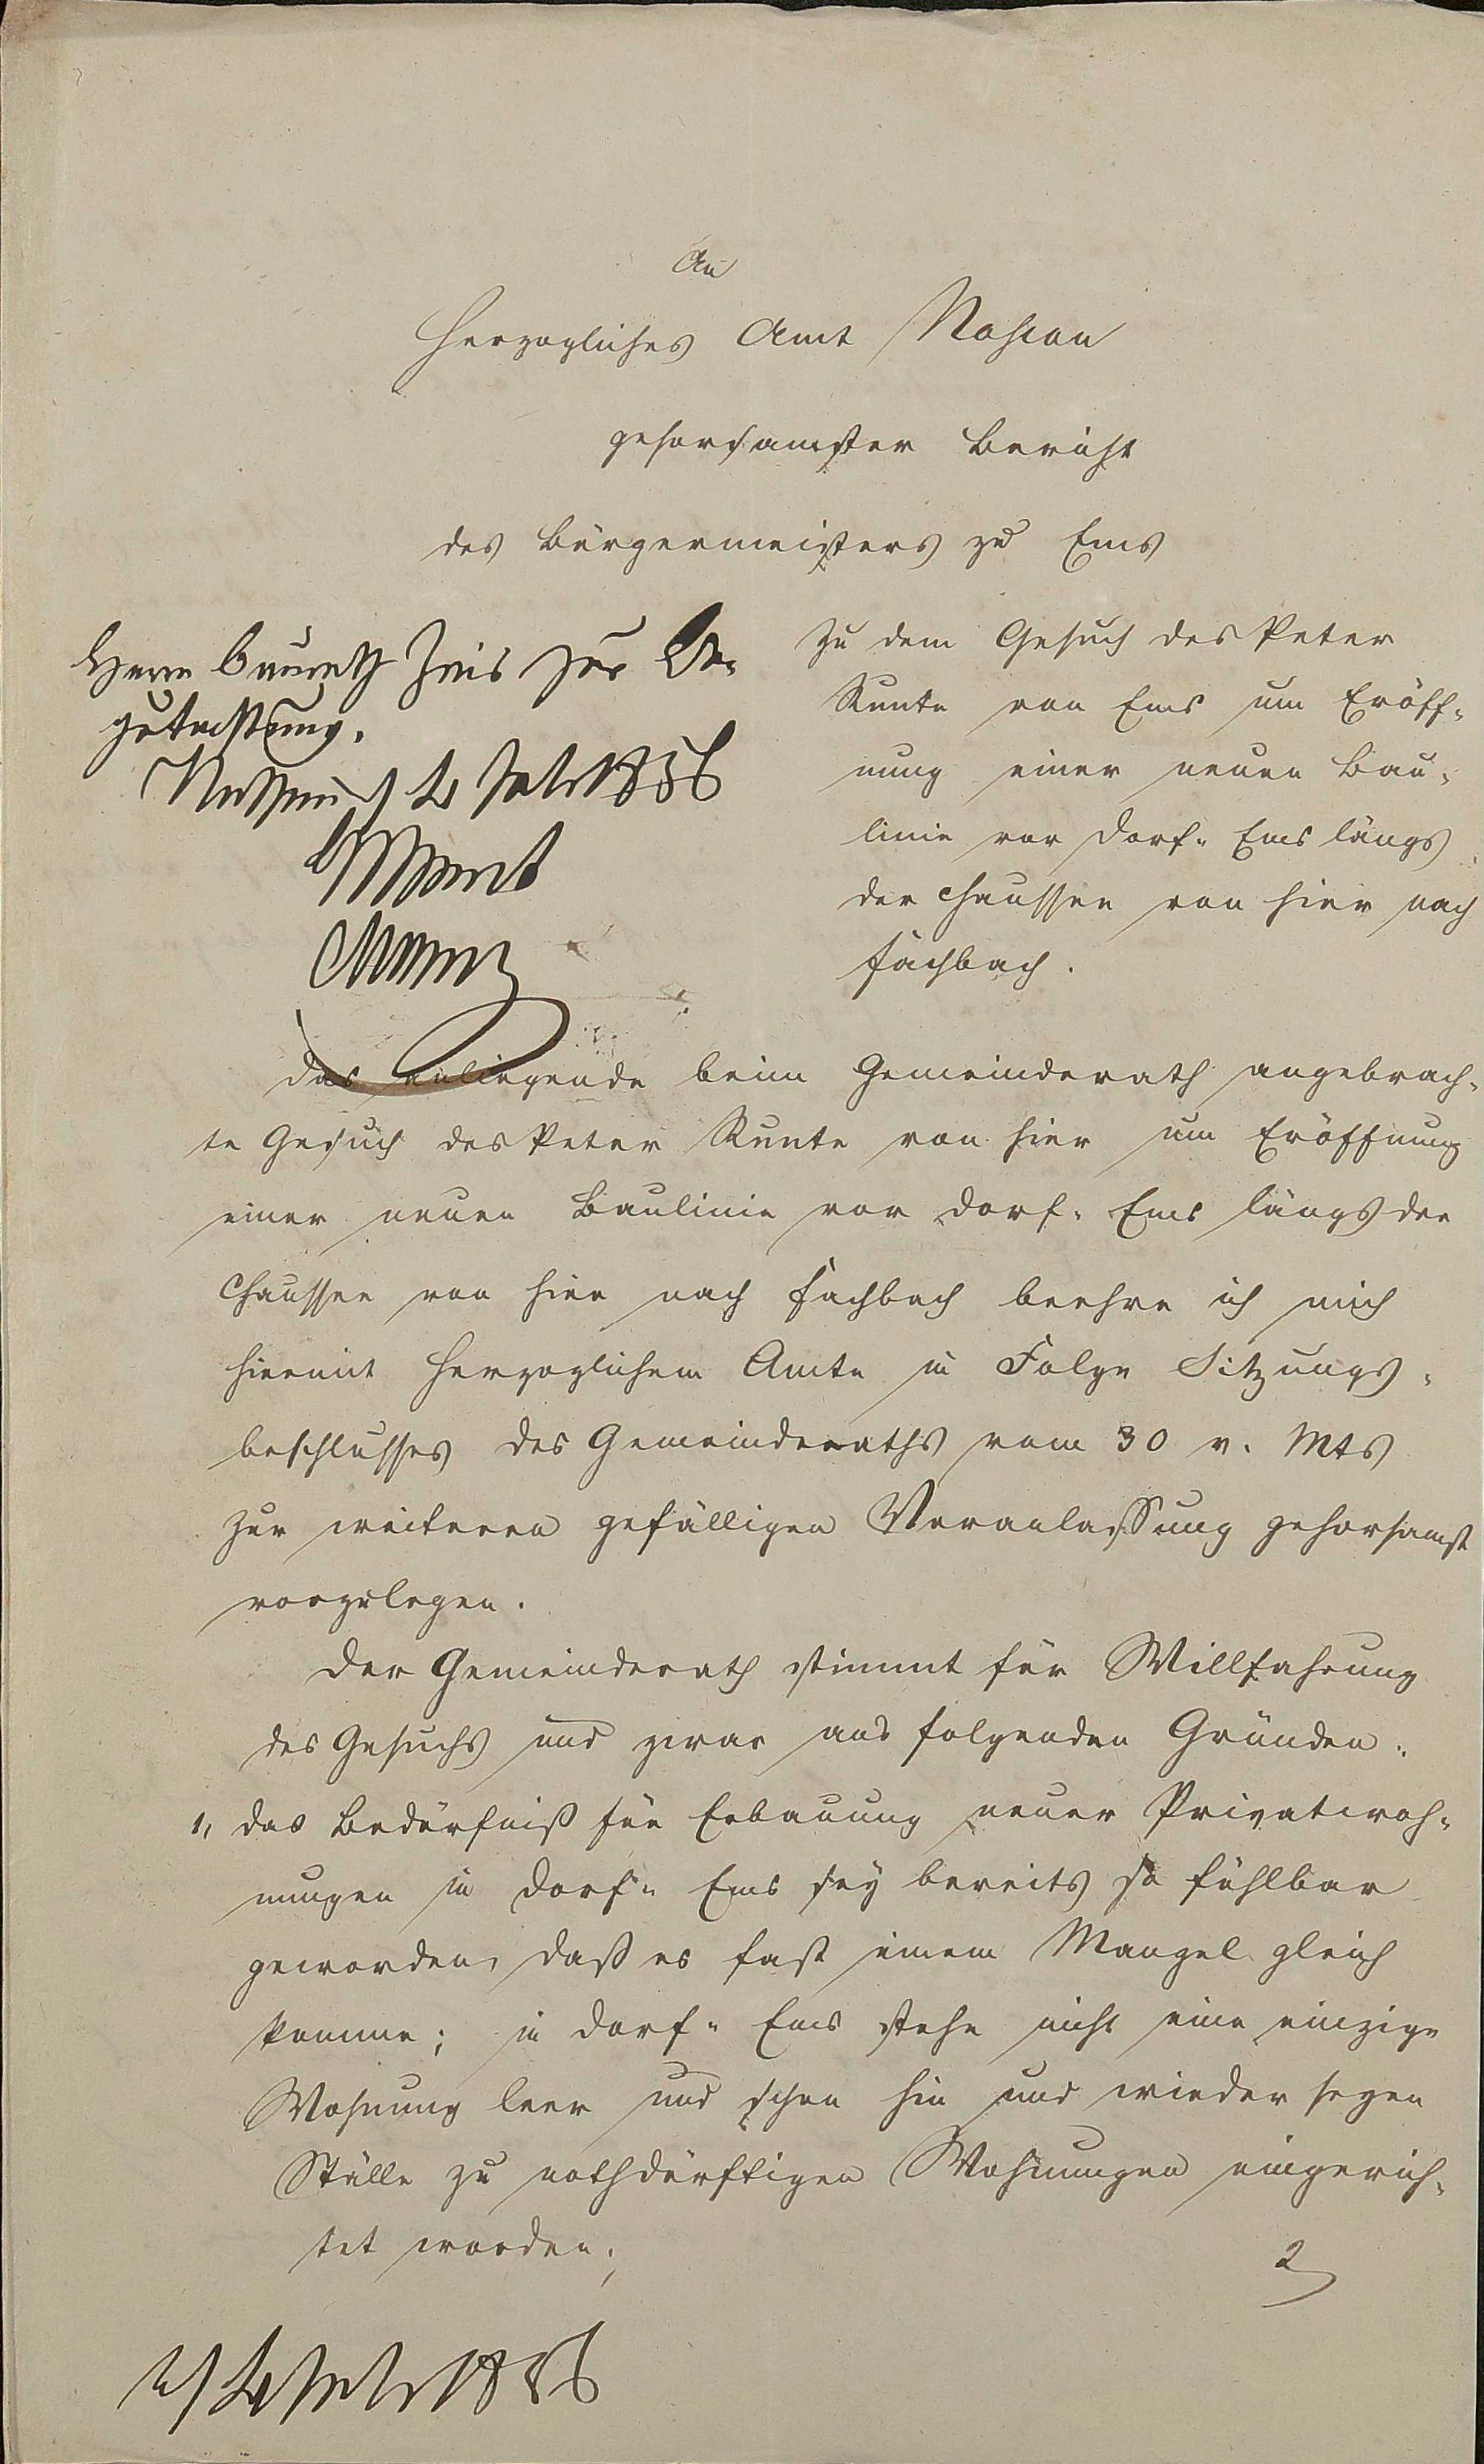 An
Herzogliches Amt Nassau
gehorsamster Bericht
des Bürgermeisters zu Ems
zu dem Gesuch des Peter
Kunte von Ems um Eröff-
nung einer neuen Bau-
linie vor Dorf-Ems längs
der Chaussee von hier nach
Fachbach.
Herrn Baurath Zais zur Be-
gutachtung.
Nassau
Das anliegende beim Gemeinderath angebrach-
te Gesuch des Peter Kunte von hier um Eröffnung
einer neuen Baulinie vor Dorf-Ems längs der
Chaussee von hier nach Fachbach beehre ich mich
hiermit Herzoglichem Amte in Folge Sitzungs-
beschlusses des Gemeinderaths vom 30 v. Mts
zur weiteren gefälligen Veranlassung gehorsamst
vorzulegen.
Der Gemeinderath stimmt für Willfahrung
des Gesuchs und zwar aus folgenden Gründen:
1, das Bedürfniß für Erbauung neuer Privatwoh-
nungen in Dorf-Ems sey bereits so fühlbar
geworden, daß es fast einem Mangel gleich
komme; in Dorf-Ems stehe nicht eine einzige
Wohnung leer und schon hin und wieder seyen
Ställe zu nothdürftigen Wohnungen eingerich-
tet worden;
2